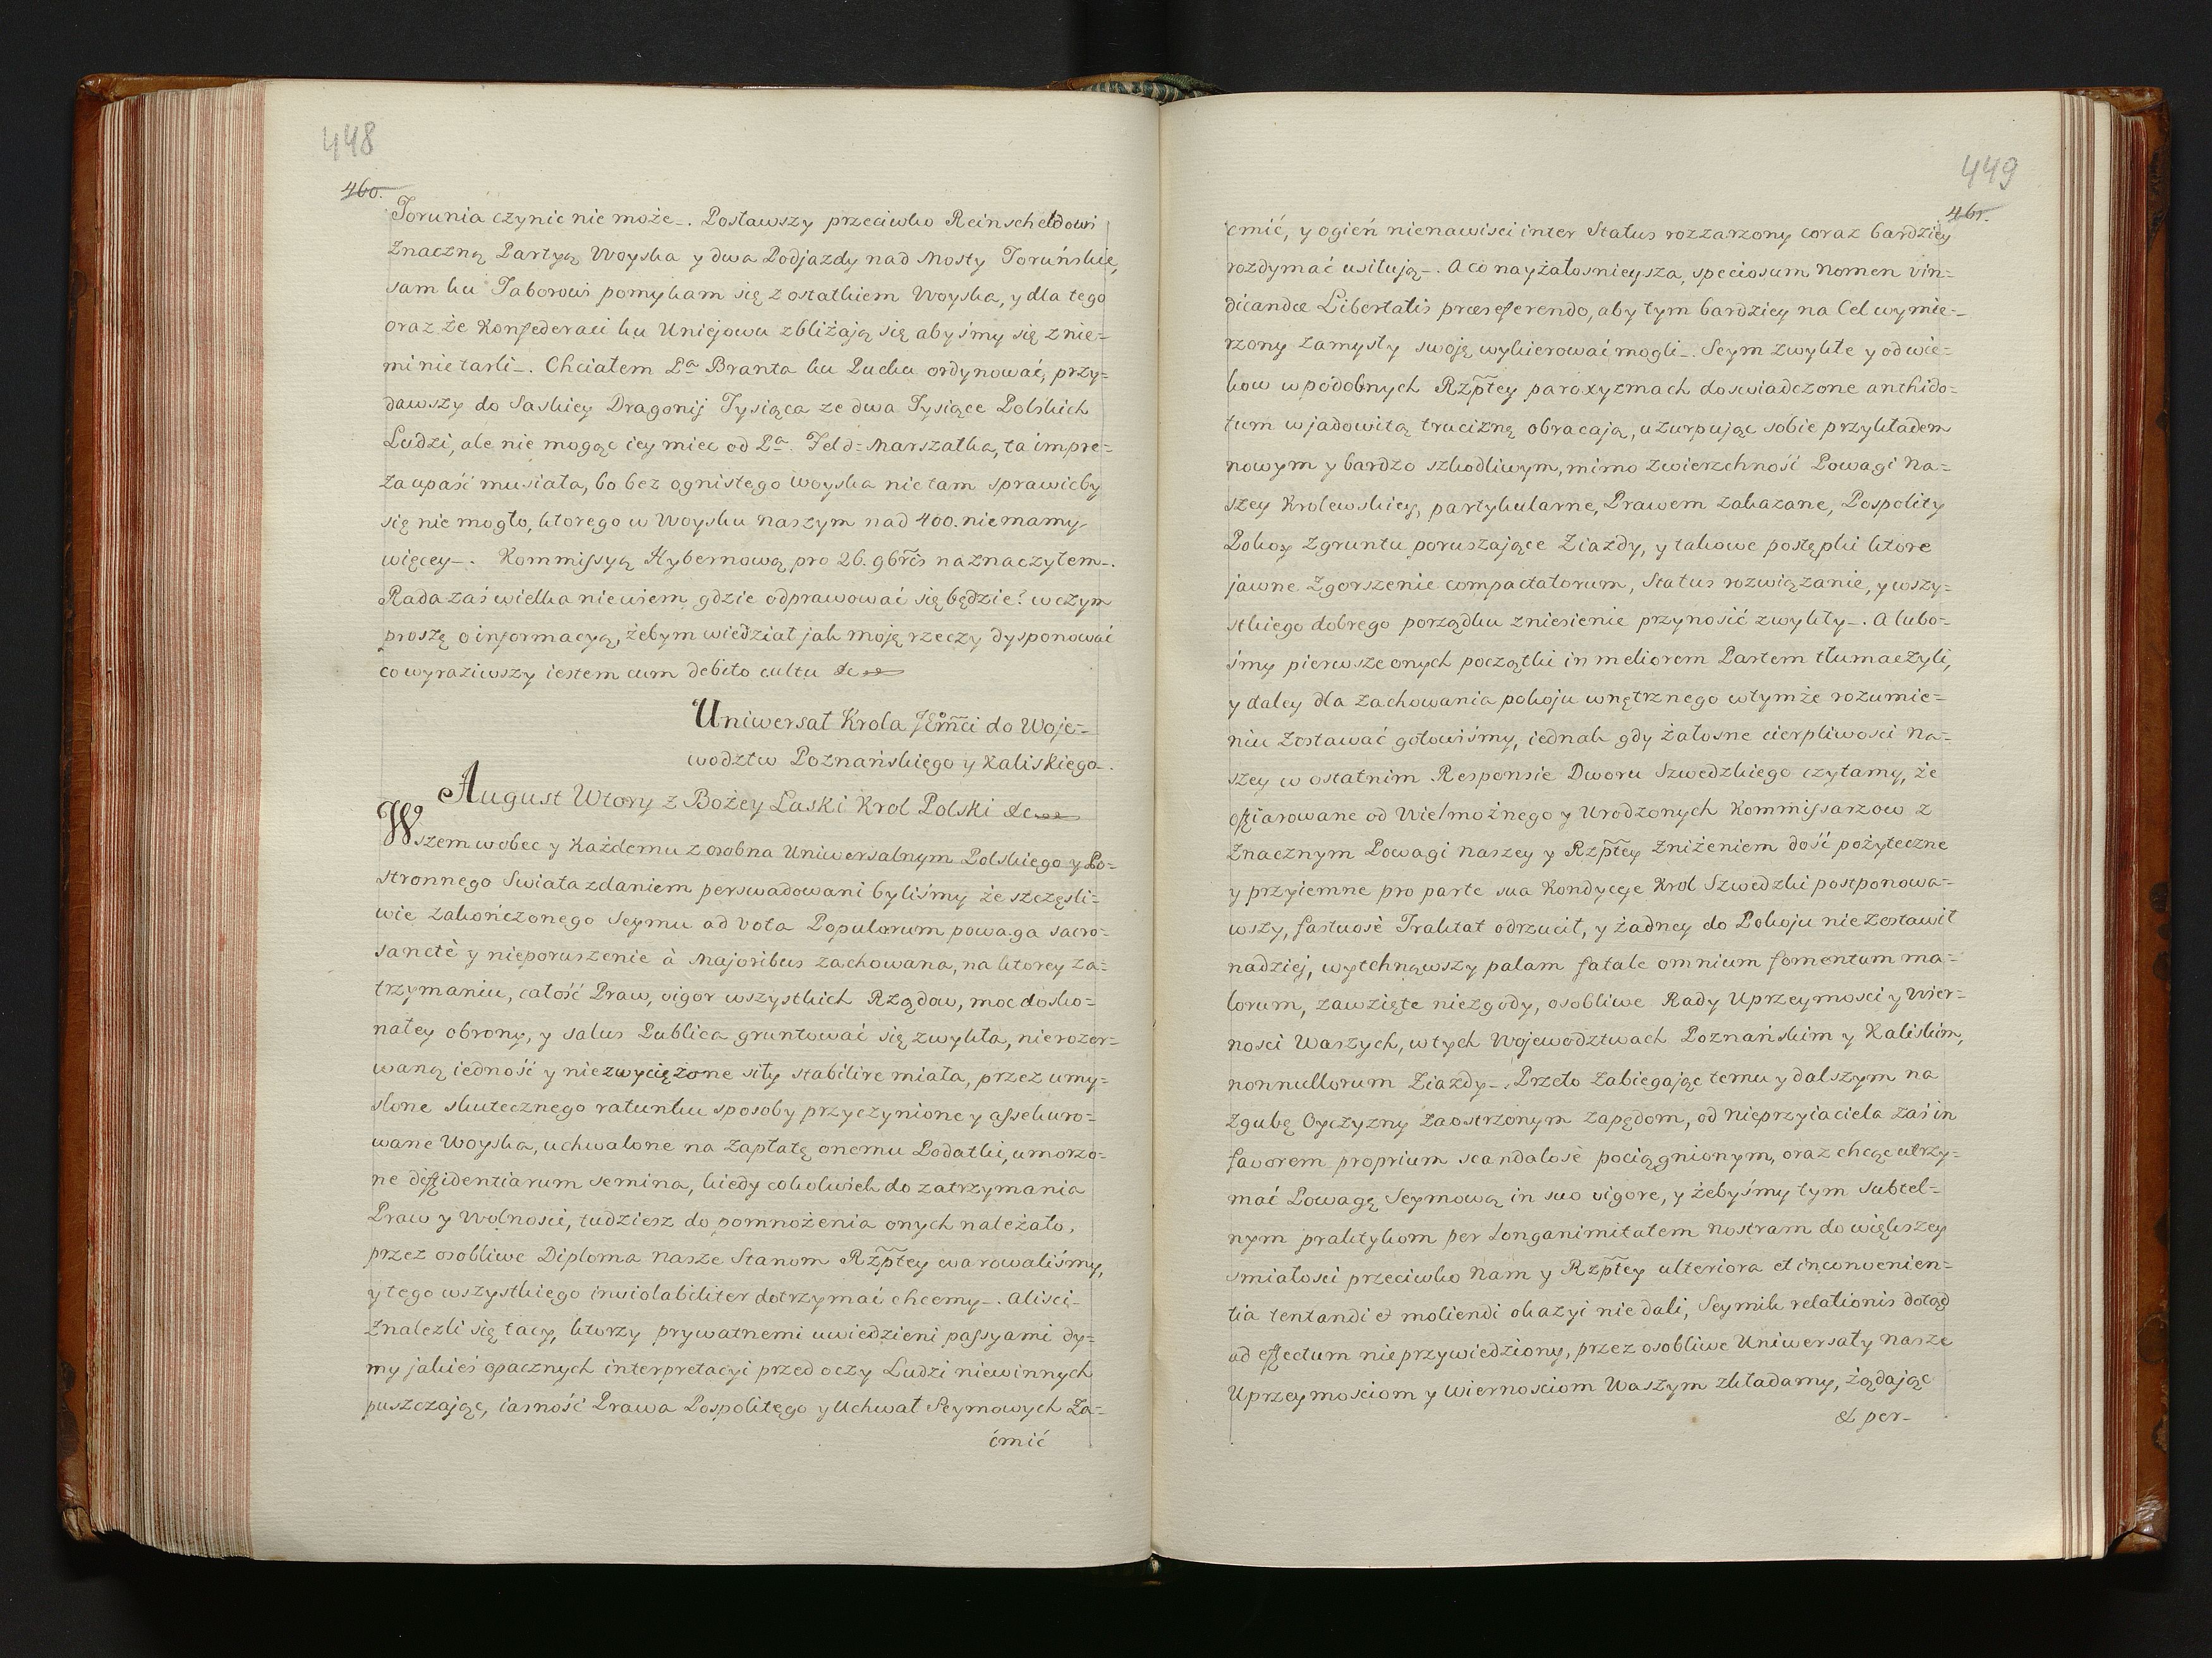 448
460.
Torunia czynic nie może_. Posławszy przeciwko Reinscheldowi
znaczną Partyą Woyska y dwa Podjazdy nad Mosty Toruńskie,
sam ku Taborowi pomykam się z ostatkiem Woyska, y dla tego
oraz że Konfederaci ku Uniejowu zbliżają się abyśmy się z nie=
mi nie tarli_. Chciałem Pa Branta ku Pucku ordynować, przy=
dawszy do Saskiey Dragonij Tysiąca ze dwa Tysiące Polskich
Ludzi, ale nie mogąc iey miec od Pa. Feld=Marszałka, ta impre=
za upaść musiała, bo bez ognistego woyska nic tam sprawicby
się nie mogło, ktorego w Woysku naszym nad 400. nie mamy
więcey_. Kommissyą Hybernową pro 26. 9bris naznaczyłem_.
Rada zaś wielka niewiem gdzie odprawować się będzie? w czym
proszę o informacyą, żebym wiedział jak moję rzeczy dysponować
co wyraziwszy iestem cum debito cultu &c
Uniwersał Krola JEmci do Woje=
wodztw Poznańskiego y Kaliskiego_.
August Wtory z Bożey Łaski Krol Polski &c
Wszem wobec y każdemu z osobna Uniwersalnym Polskiego y Po=
stronnego Swiata zdaniem perswadowani byliśmy że szczęsli=
wie zakończonego Seymu ad vota Populorum powaga sacro=
sanctè y nieporuszenie à Majoribus zachowana, na ktorey za=
trzymaniu, całość Praw, vigor wszystkich Rządow, moc dosko=
nałey obrony, y salus Publica gruntować się zwykła, nierozer=
waną iedność y niezwyciężone siły stabilire miała, przez umy=
slone skutecznego ratunku sposoby przyczynione y assekuro=
wane Woyska, uchwalone na zapłatę onemu Podatki, umorzo=
ne diffidentiarum semina, kiedy cokolwiek do zatrzymania
Praw y Wolnosci, tudziesz do pomnożenia onych należało,
przez osobliwe Diploma nasze Stanom Rzptey warowaliśmy,
y tego wszystkiego inviolabiliter dotrzymać chcemy_. Alisci_
znalezli się tacy, ktorzy prywatnemi uwiedzieni passyami dy=
my jakieś opacznych interpretacyi przed oczy Ludzi niewinnych
puszczając, iasność Prawa Pospolitego y Uchwał Seymowych za=
ćmić
449
461.
ćmić, y ogień nienawisci inter Status rozzarzony coraz bardziey
rozdymać usiłują_. A co nayżałosnieysza, speciosum Nomen vin=
dicandæ Libertatis præreferendo, aby tym bardziey na Cel wymie=
rzony zamysły swoję wykierować mogli_. Seym zwykłe y od wie=
kow w podobnych Rzptey paroxyzmach doswiadczone anthido=
tum w jadowitą truciznę obracają, uzurpując sobie przykładem
nowym y bardzo szkodliwym, mimo zwierzchność Powagi Na=
szey Krolewskiey, partykularne, Prawem zakazane, Pospolity
Pokoy z gruntu poruszające Ziazdy, y takowe postępki ktore
jawne zgorszenie compactatorum, Status rozwiązanie, y wszy=
stkiego dobrego porządku zniesienie przynosić zwykły_. A lubo=
śmy pierwsze onych początki in meliorem Partem tłumaczyli,
y daley dla zachowania pokoju wnętrznego w tymże rozumie=
niu zostawać gotowiśmy, iednak gdy żałosne cierpliwosci Na=
szey w ostatnim Responsie Dworu Szwedzkiego czytamy, że
ofiarowane od Wielmożnego y Urodzonych Kommissarzow z
znacznym Powagi naszey y Rzptey zniżeniem dość pożyteczne
y przyiemne pro parte sua Kondycye Krol Szwedzki postponowa=
wszy, fastuosè Traktat odrzucił, y żadney do Pokoju nie zostawił
nadziej, wytchnąwszy palam fatale omnium fomentum ma=
lorum, zawzięte niezgody, osobliwe Rady Uprzeymosci y Wier=
nosci Waszych, w tych Wojewodztwach Poznańskim y Kaliskim,
nonnullorum Ziazdy_. Przeto zabiegając temu y dalszym na
zgubę Oyczyzny zaostrzonym zapędom, od nieprzyiaciela zaś in
favorem proprium scandalosè pociągnionym, oraz chcąc utrzy=
mać Powagę Seymową in suo vigore, y żebyśmy tym subtel=
nym praktykom per Longanimitatem nostram do większey
smiałosci przeciwko Nam y Rzptey ulteriora et inconvenien=
tia tentandi & moliendi okazyi nie dali, Seymik relationis dotąd
ad effectum nie przywiedziony, przez osobliwe Uniwersały nasze
Uprzeymosciom y Wiernosciom Waszym zkładamy, żądając
& per_